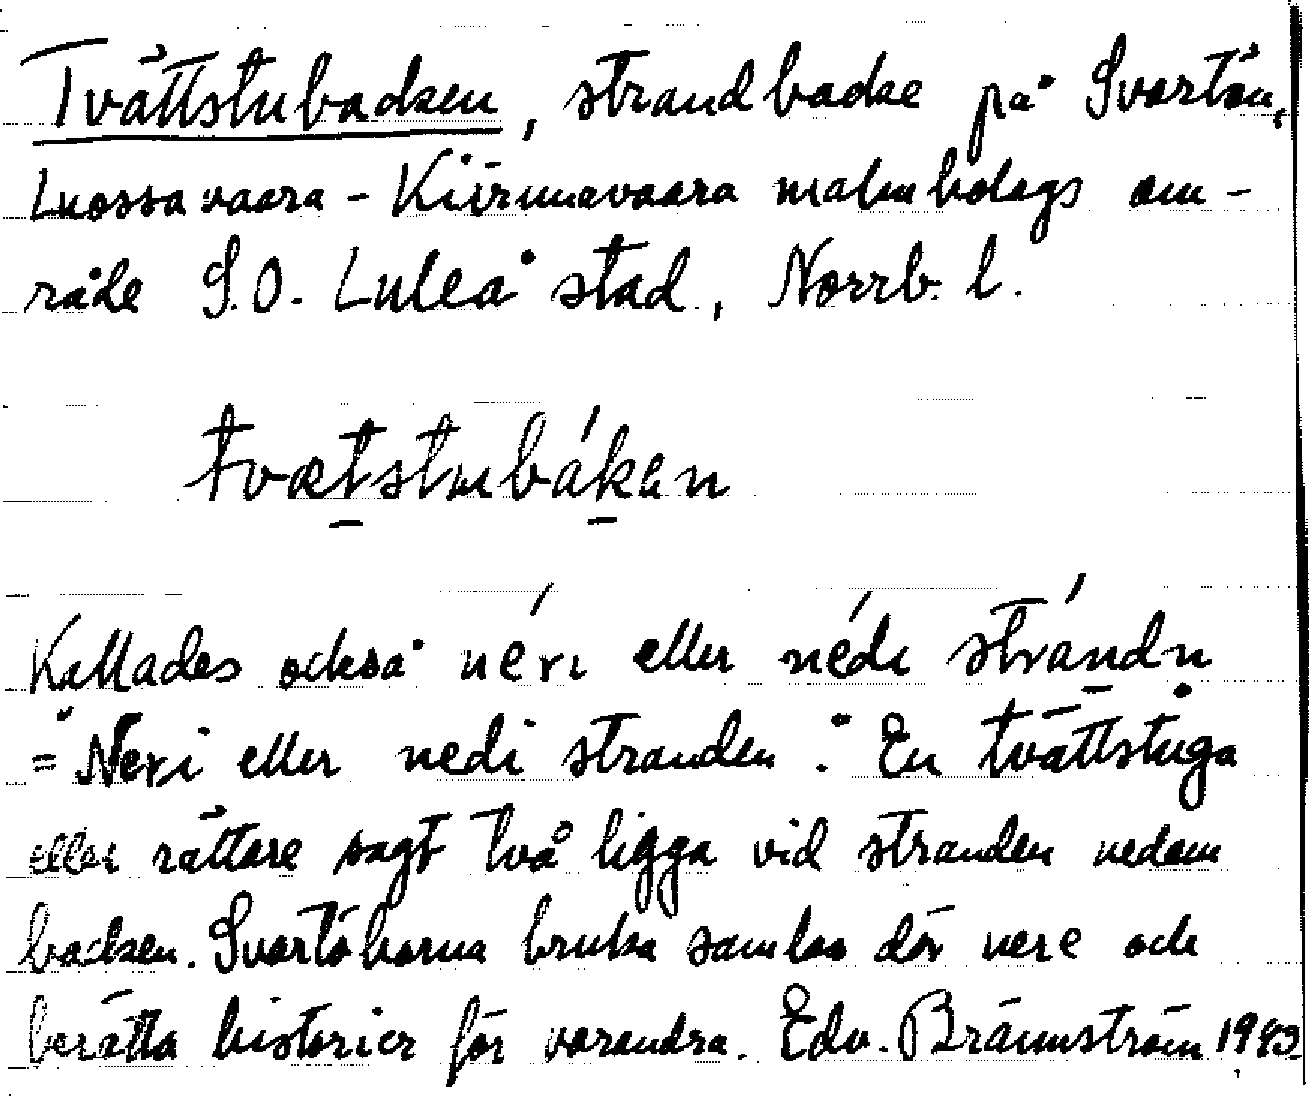 Tvättstubacken, strandbacke på Svartön,
Luossavaara - Kiirunavaara malmbolags om-
råde S.O. Luleå stad, Norrb. l.
tvætstubáken
Kallades också néri eller nédi strándn
= "Neri eller nedi stranden". En tvättstuga
eller rättare sagt två ligga vid stranden nedom
backen. Svartöborna bruka samlas där nere och
berätta historier för varandra. Edv. Brännström 1943.